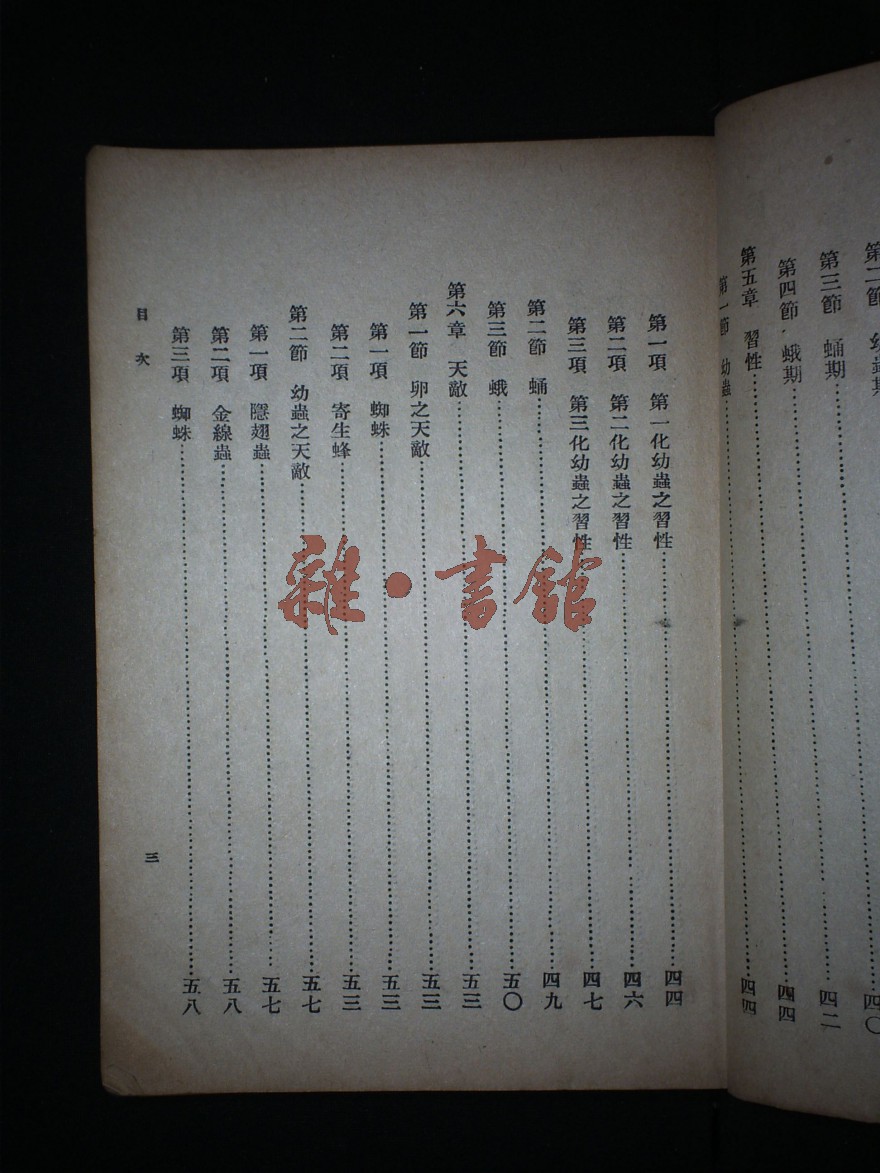 第三節 蛹期……四二
第四節 蛾期……四四
第五章 習性……四四
第一節 幼蟲
第一項 第一化幼蟲之習性……四四
第二項 第二化幼蟲之習性……四六
第三項 第三化幼蟲之習性……四七
第二節 蛹……四九
第三節 蛾……五〇
第六章 天敵……五三
第一節 卵之天敵……五三
第一項 蜘蛛……五三
第二項 寄生蜂……五三
第二節 幼蟲之天敵……五七
第一項 隱翅蟲……五七
第二項 金線蟲……五八
第三項 蜘蛛……五八
目次
三
雜·書館